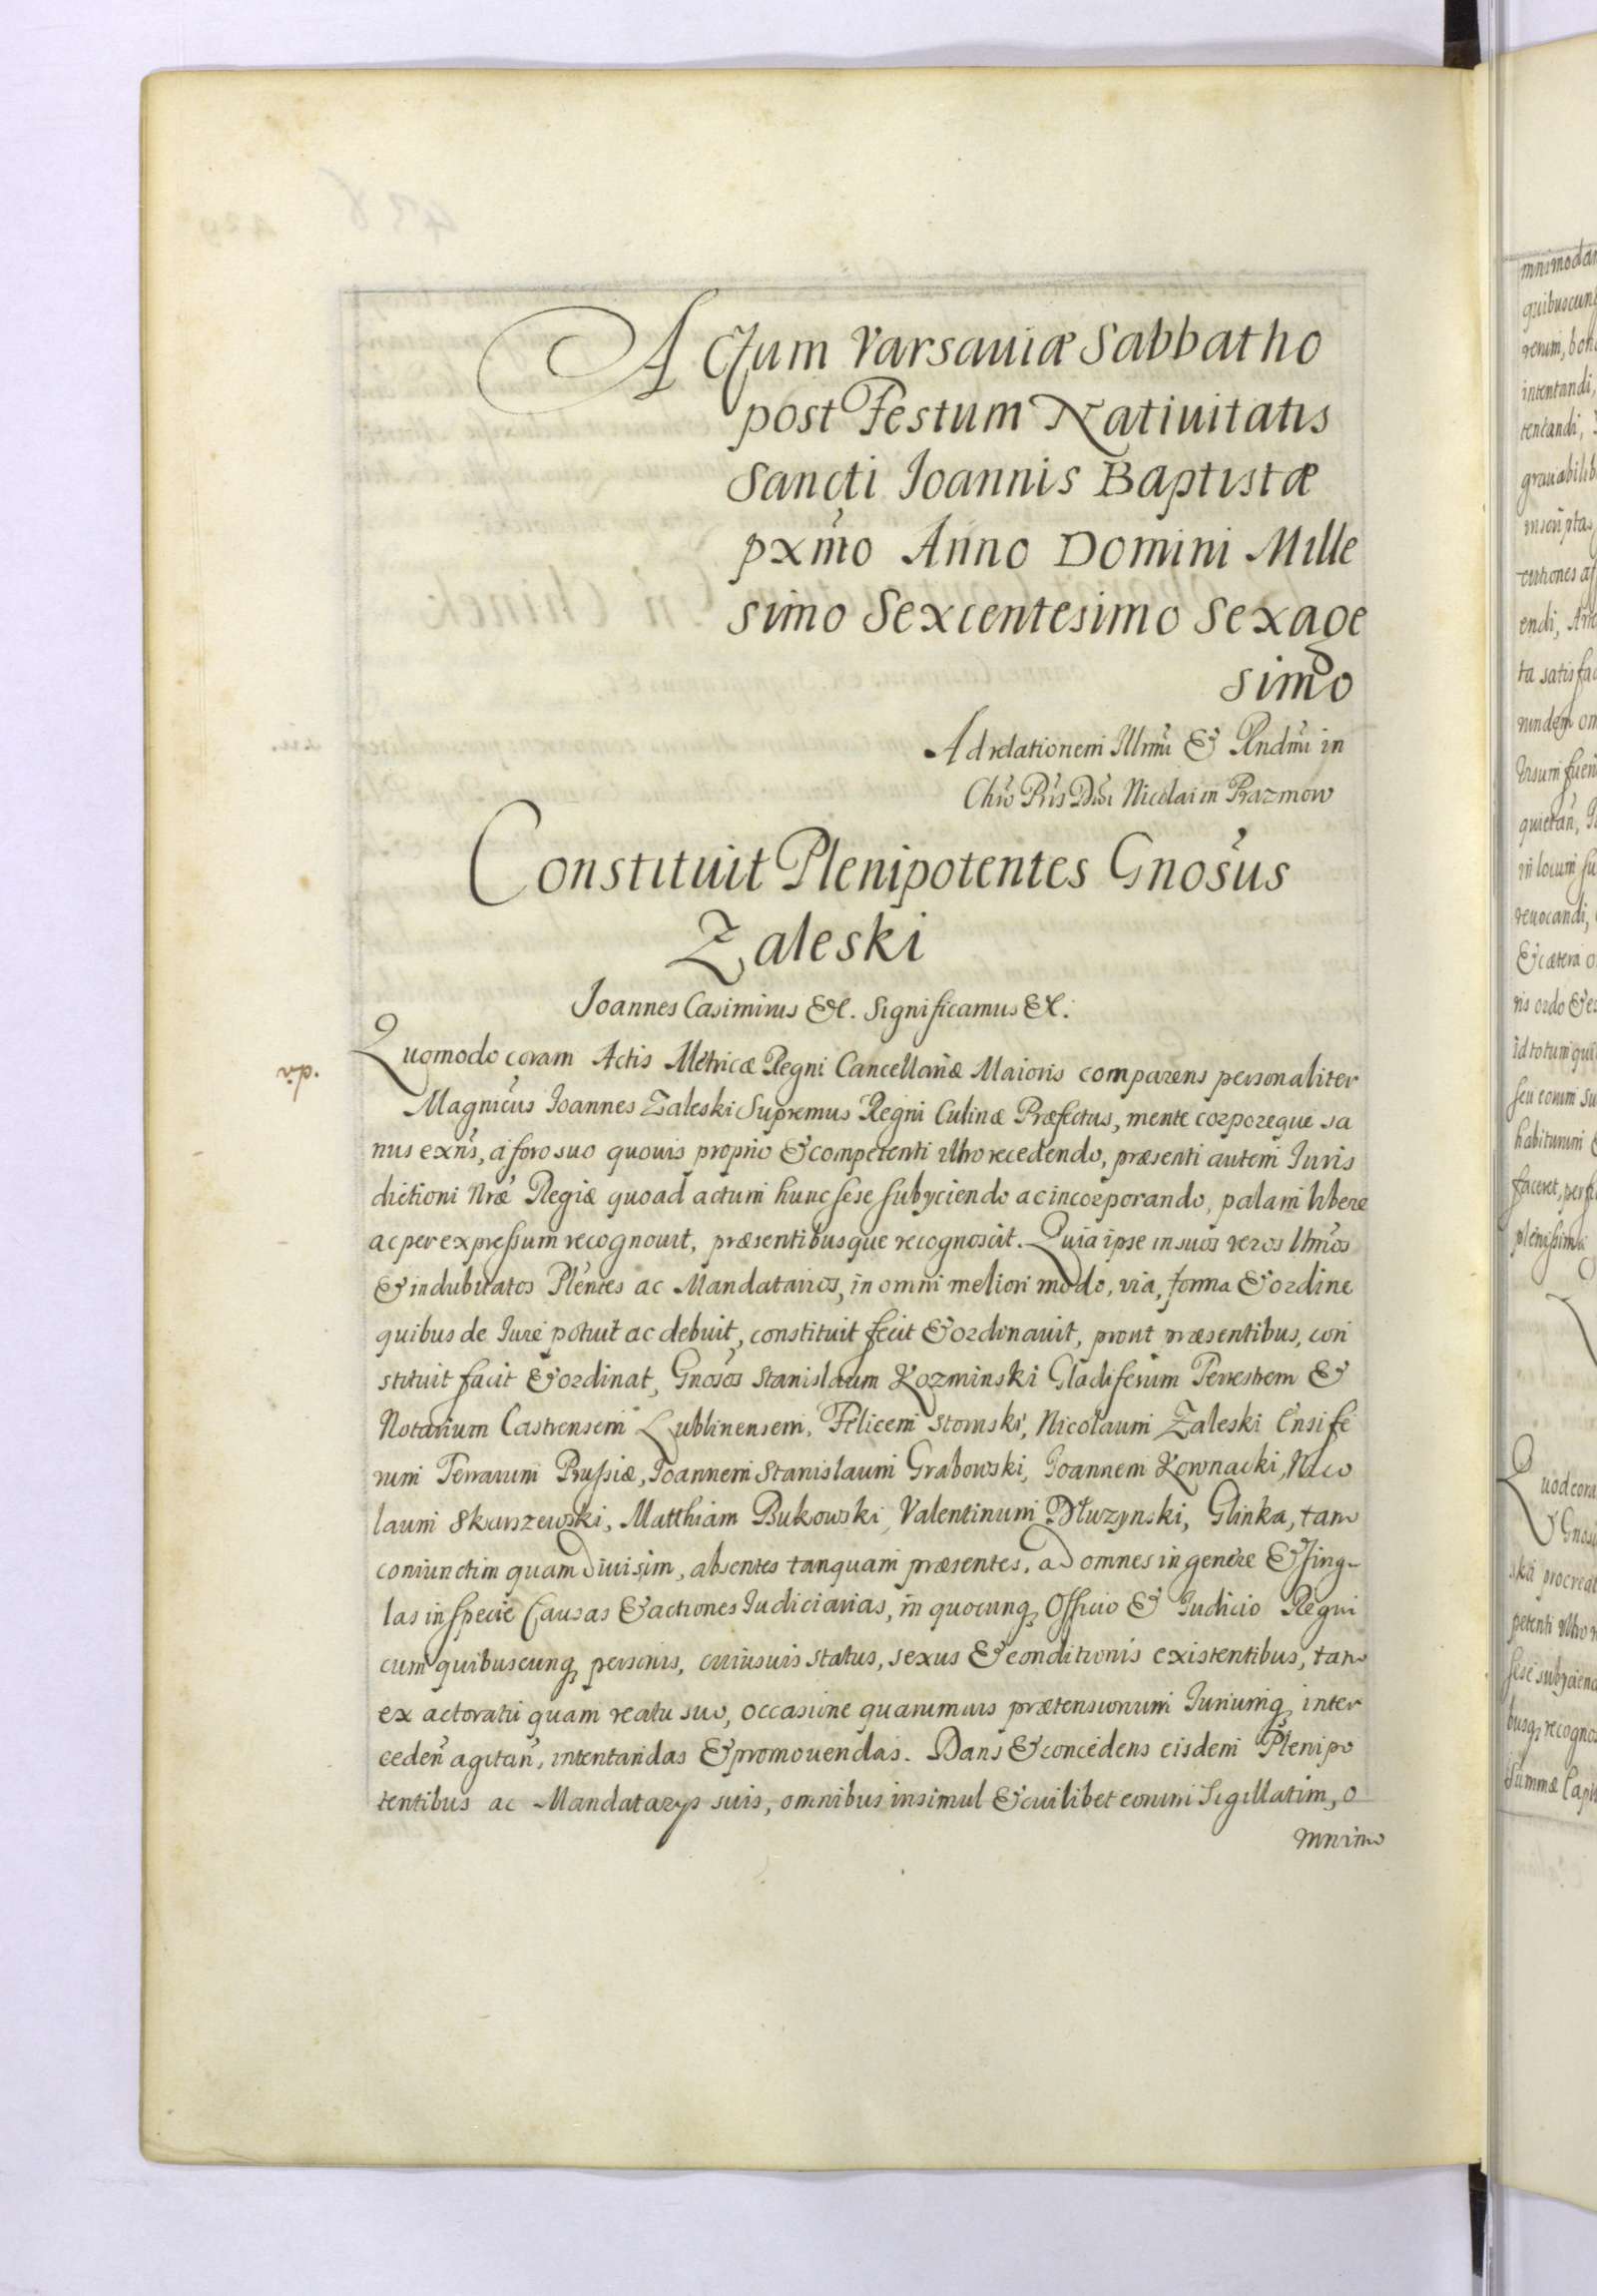 Actum Varsaviæ Sabbatho
post Festum Natiuitatis
Sancti Joannis Baptistæ
pxmo Anno Domini Mille
simo Sexcentesimo Sexage
simo
Ad relationem Illmi & Rndmi in
Chro Pris Dni Nicolai in Prazmow
Constituit Plenipotentes Gnosus
Zaleski
Joannes Casimirus &c. Significamus &c.
Quomodo coram Actis Metricæ Regni Cancellariæ Maioris comparens personaliter
Magnicus Joannes Zaleski Supremus Regni Culinæ Præfectus, mente corporeque sa
nus exns, a foro suo quouis proprio & competenti ultro recedendo, præsenti autem Juris
dictioni Nræ Regiæ quo ad actum hunc sese subyciendo ac incorporando, palam libere
ac per expressum recognouit, præsentibusque recognoscit. Quia ipse in suos veros lttmos
& indubitatos Plentes ac Mandatarios, in omni meliori modo, via, forma & ordine
quibus de Jure potuit ac debuit, constituit fecit & ordinauit, prout præsentibus, con
stituit facit & ordinat, Gnosos Stanislaum Kozminski Gladiferum Terrestrem &
Notarium Castrensem Lublinensem, Felicem Stomski, Nicolaum Zaleski Ensife
rum Terrarum Prussiæ, Joannem Stanislaum Grabowski, Joannem Kownacki, Nico
laum Skarszewski, Matthiam Bukowski, Valentinum Dłuzynski, Glinka, tam
coniunctim quam Diuisim, absentes tanquam præsentes, ad omnes in genere & singu
las in specie Causas & actiones Judiciarias, in quocunq Officio & Judicio Regni
cum quibuscunq personis, cuiusuis status, sexus & conditionis existentibus, tam
ex actoratu quam reatu suo, occasione quarumuis prætensionum Juriumq inter
ceden agitan, intentandas & promouendas. Dans & concedens eisdem Plenipo
tentibus ac Mandatarys suis, omnibus insimul & cuilibet eorum Sigillatim, o
mnimo